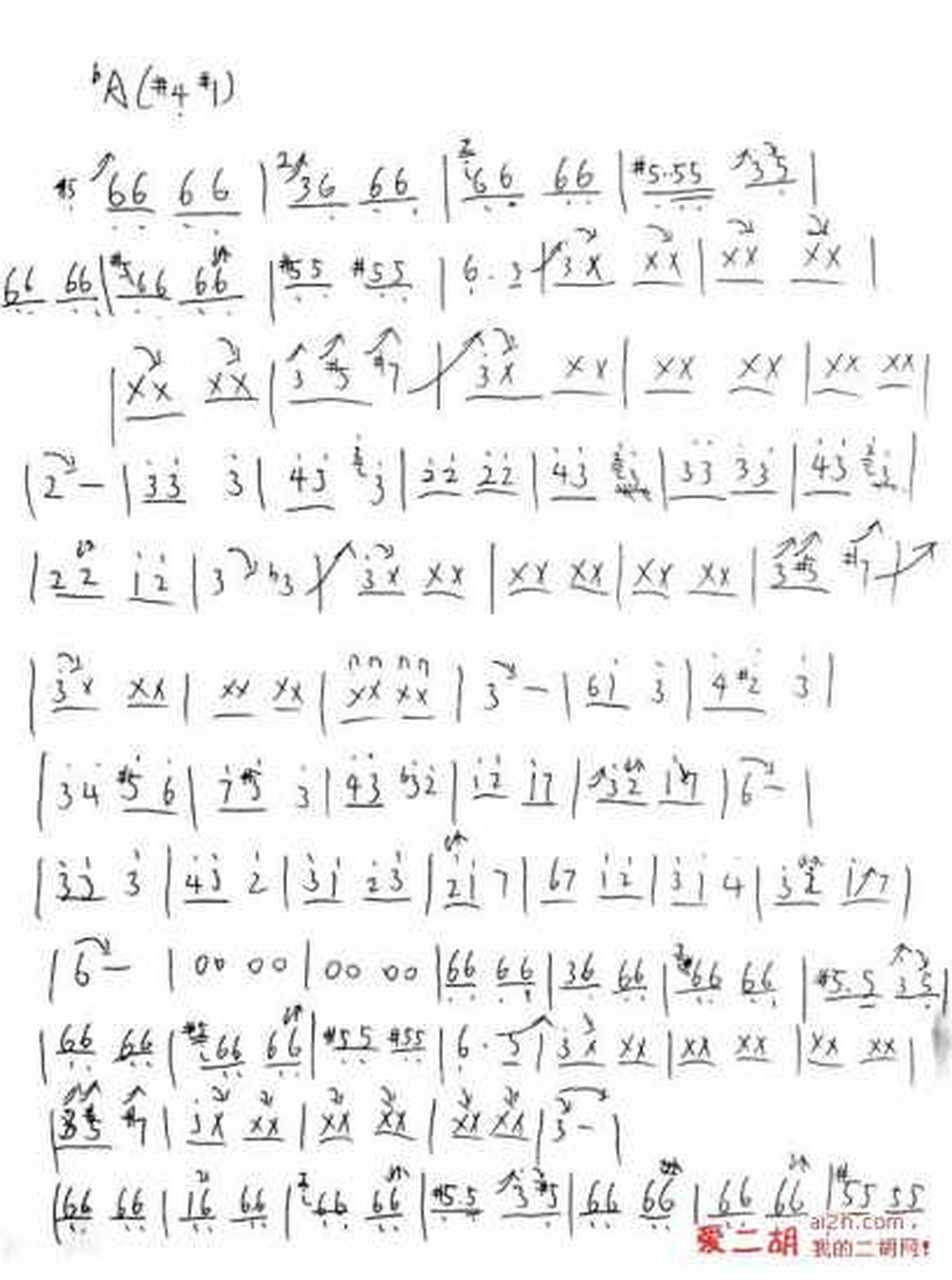 ♭A(#4 #1)
#5 66 66 | 2 36 66 | 2 66 66 | #5·55 35 |
66 66 | #5 66 66 | #55 #55 | 6·3 | 3X XX | XX XX |
| XX XX | 3 #5 #7 | 3X XX | XX XX | XX XX |
| 2 — | 33 3 | 43 3 | 22 22 | 43 | 33 33 | 43 |
| 22 12 | 3 ♮3 | 3X XX | XX XX | XX XX | 3 #5 #7 |
| 3X XX | XX XX | XX XX | 3 — | 61 3 | 4 #2 3 |
| 34 #5 6 | 7 #5 3 | 43 32 | 12 17 | 32 17 | 6 — |
| 33 3 | 43 2 | 31 23 | 21 7 | 67 12 | 31 4 | 32 17 |
| 6 — | 00 00 | 00 00 | 66 66 | 36 66 | 66 66 | #5·5 35 |
| 66 66 | #5 66 66 | #55 #55 | 6·5 | 3X XX | XX XX | XX XX |
| 3 #5 #7 | 3X XX | XX XX | XX XX | 3 — |
| 66 66 | 16 66 | 2 66 66 | #5·5 3 #5 | 66 66 | 66 66 | #55 55
爱二胡 ai2h.com
我的二胡网!